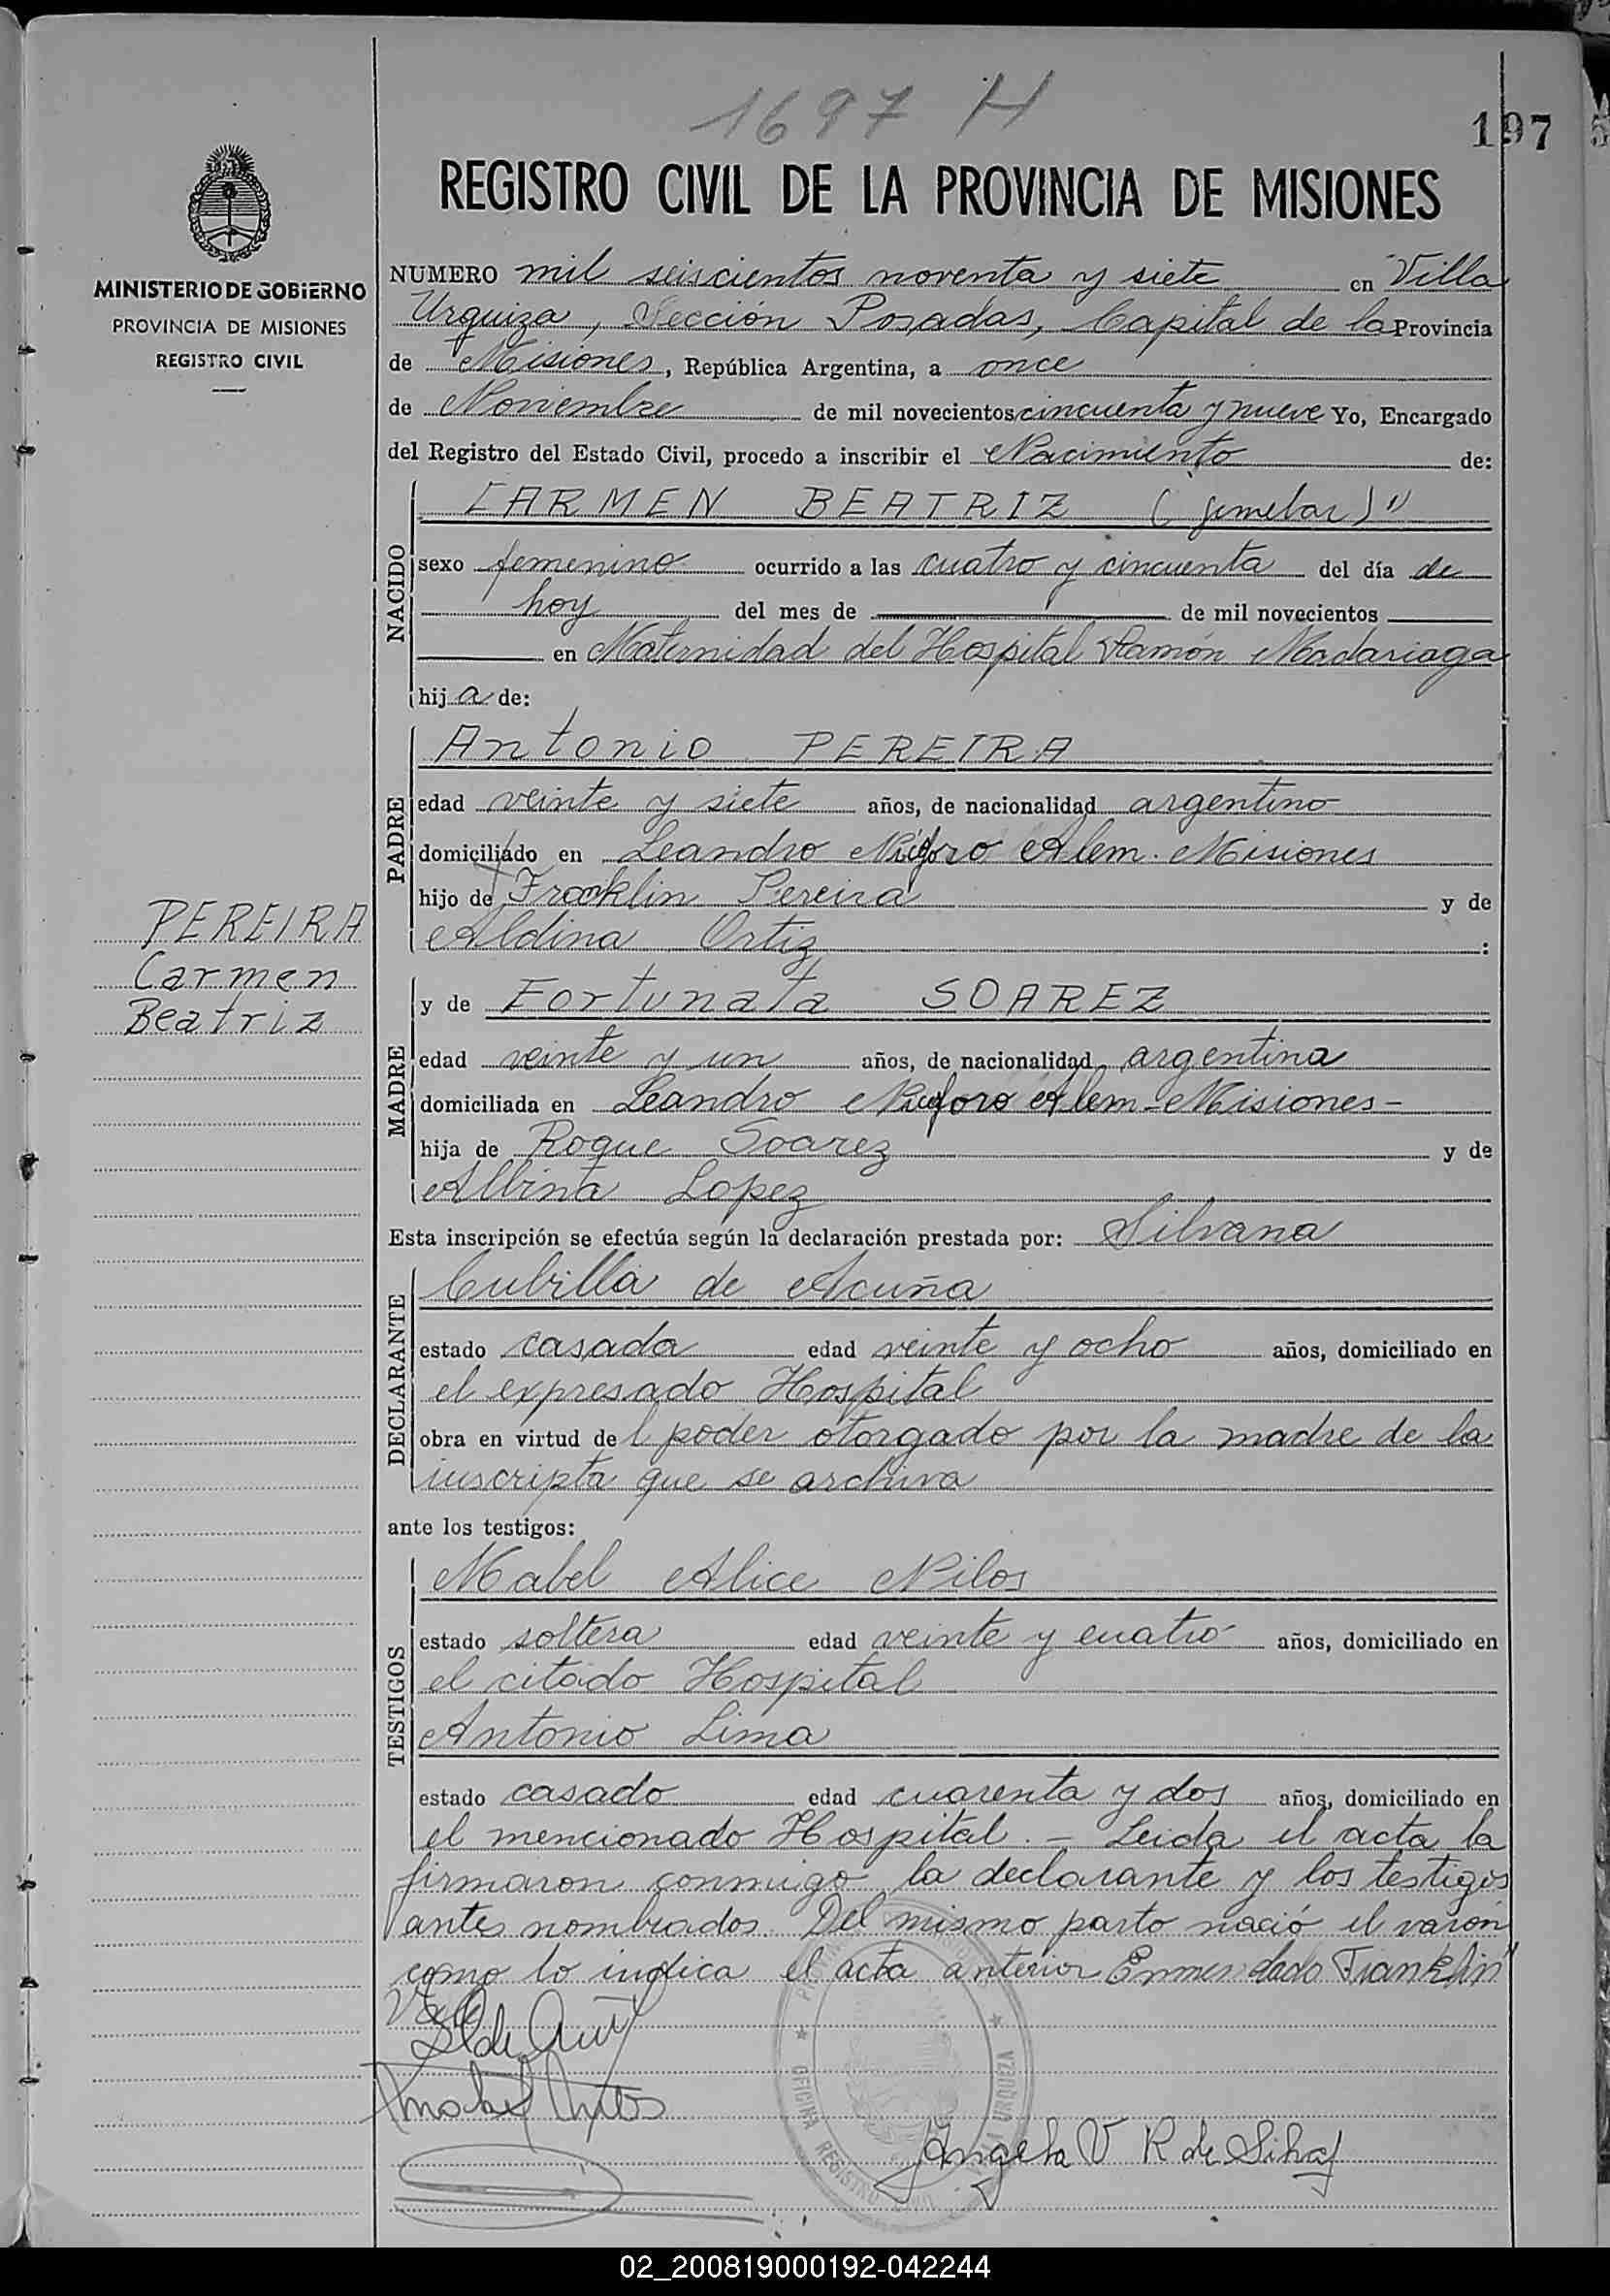 1697 H
197
REGISTRO CIVIL DE LA PROVINCIA DE MISIONES
MINISTERIO DE GOBIERNO
PROVINCIA DE MISIONES
REGISTRO CIVIL
NUMERO mil seiscientos noventa y siete en Villa
Urquiza, Sección Posadas, Capital de la Provincia
de Misiones, República Argentina, a once
de Noviembre de mil novecientos cincuenta y nueve Yo, Encargado
del Registro del Estado Civil, procedo a inscribir el Nacimiento de:
NACIDO
CARMEN BEATRIZ (gemelar)"
sexo femenino ocurrido a las cuatro y cincuenta del día de
hoy del mes de de mil novecientos
en Maternidad del Hospital Ramón Madariaga
hij a de:
PADRE
Antonio PEREIRA
edad veinte y siete años, de nacionalidad argentino
domiciliado en Leandro Niceforo Alem. Misiones
hijo de Franklin Pereira y de
Aldina Ortiz :
PEREIRA
Carmen
Beatriz
MADRE
y de Fortunata SOAREZ
edad veinte y un años, de nacionalidad argentina
domiciliada en Leandro Niceforo Alem - Misiones -
hija de Roque Soarez y de
Albina Lopez
Esta inscripción se efectúa según la declaración prestada por: Silvana
DECLARANTE
Cubilla de Acuña
estado casada edad veinte y ocho años, domiciliado en
el expresado Hospital
obra en virtud de l poder otorgado por la madre de la
inscripta que se archiva
ante los testigos:
TESTIGOS
Mabel Alice Nilos
estado soltera edad veinte y cuatro años, domiciliado en
el citado Hospital
Antonio Lima
estado casado edad cuarenta y dos años, domiciliado en
el mencionado Hospital. - Leida el acta la
firmaron conmigo la declarante y los testigos
antes nombrados. Del mismo parto nació el varón
como lo indica el acta anterior Enmendado Franklin"
Vale
OFICINA REGISTRO CIVIL VILLA URQUIZA
Angela V R de Silva
02_200819000192-042244